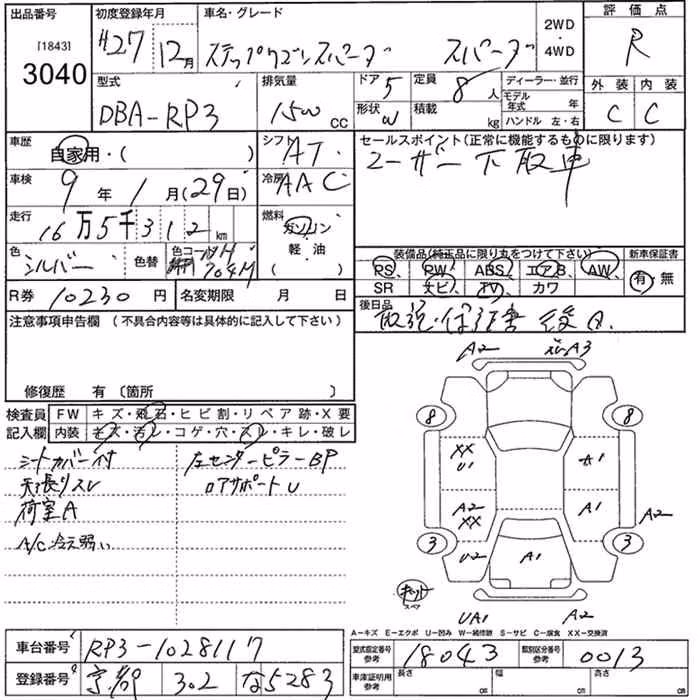 出品番号 初度登録年月 車名・グレード 2WD・4WD 評価点
[1843] 3040 H27 12月 ステップワゴンスパーダ スパーダ R
型式 排気量 ドア 5 定員 8人 ディーラー・並行 外装 内装
DBA-RP3 1500cc 形状 W 積載 kg モデル年式 年 ハンドル 左・右 C C
車歴 自家用・( ) シフト AT セールスポイント(正常に機能するものに限ります)
車検 9年1月(29日) 冷房 AAC ユーザー下取車
走行 16万5千312km 燃料 ガソリン
軽・油
( )
色 シルバー 色替 色コード NH 704M 装備品(純正品に限り丸をつけて下さい) 新車保証書
PS、PW、ABS、エアB、AW、 有・無
SR ナビ、TV、カワ
R券 10230円 名変期限 月 日 後日品
取説・保証書 後日
注意事項申告欄 (不具合内容等は具体的に記入して下さい)
修復歴 有 (箇所 )
検査員 FW キズ・飛石・ヒビ割・リペア跡・X要
記入欄 内装 キズ・汚レ・コゲ・穴・スレ・キレ・破レ
シートカバー付 左センターピラーBP
天張りスレ ロアサポートU
荷室A
A/C冷え弱い
A2 A3
8 8
XX U1 A1
A2 XX A1 A2
3 3
U2 A1
キット
スペア
UA1 A2
A-キズ E-エクボ U-凹み W-補修跡 S-サビ C-腐食 XX-交換済
車台番号 RP3-1028117 型式指定番号 参考 18043 類別区分番号 参考 0013
登録番号 京都 302 な5283 車庫証明用 参考 長さ cm 幅 cm 高さ cm